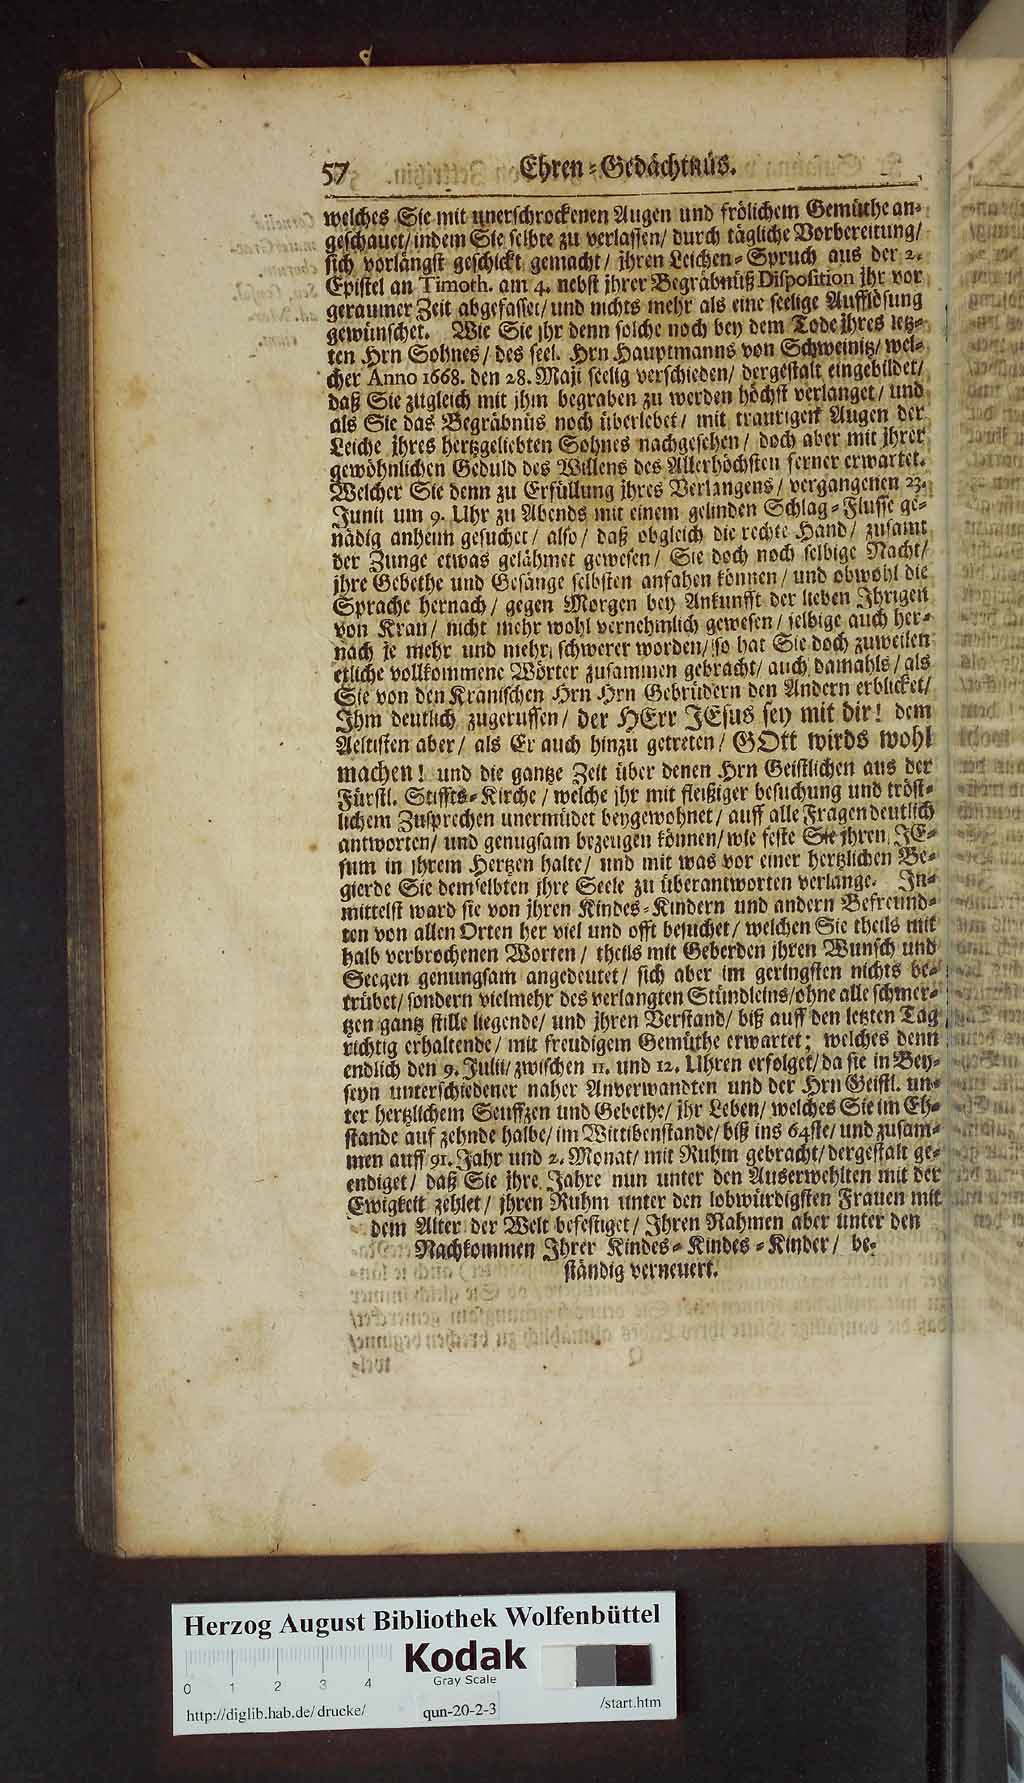 57 Ehren-Gedächtnüs.
welches Sie mit unerschrockenen Augen und frölichem Gemüthe an-
geschauet/ indem Sie selbte zu verlassen/ durch tägliche Vorbereitung/
sich vorlängst geschickt gemacht/ jhren Leichen-Spruch aus der 2.
Epistel an Timoth. am 4. nebst jhrer Begräbnüß Disposition jhr vor
geraumer Zeit abgefasset/ und nichts mehr als eine seelige Aufflösung
gewünschet. Wie Sie jhr denn solche noch bey dem Tode jhres letz-
ten Hrn Sohnes/ des seel. Hrn Hauptmanns von Schweinitz/ wel-
cher Anno 1668. den 28. Maji seelig verschieden/ dergestalt eingebildet/
daß Sie zugleich mit jhm begraben zu werden höchst verlanget/ und
als Sie das Begräbnüs noch überlebet/ mit traurigen Augen der
Leiche jhres hertzgeliebten Sohnes nachgesehen/ doch aber mit jhrer
gewöhnlichen Geduld des Willens des Allerhöchsten ferner erwartet.
Welcher Sie denn zu Erfüllung jhres Verlangens/ vergangenen 23.
Junii um 9. Uhr zu Abends mit einem gelinden Schlag-Flusse ge-
nädig anheim gesuchet/ also/ daß obgleich die rechte Hand/ zusamt
der Zunge etwas gelähmet gewesen/ Sie doch noch selbige Nacht/
jhre Gebethe und Gesänge selbsten anfahen können/ und obwohl die
Sprache hernach/ gegen Morgen bey Ankunfft der lieben Jhrigen
von Kran/ nicht mehr wohl vernehmlich gewesen/ selbige auch her-
nach je mehr und mehr schwerer worden/ so hat Sie doch zuweilen
etliche vollkommene Wörter zusammen gebracht/ auch damahls/ als
Sie von den Kranischen Hrn Hrn Gebrüdern den Andern erblicket/
Jhm deutlich zugeruffen/ der HErr JEsus sey mit dir! dem
Aeltisten aber/ als Er auch hinzu getreten/ GOtt wirds wohl
machen! und die gantze Zeit über denen Hrn Geistlichen aus der
Fürstl. Stiffts-Kirche/ welche jhr mit fleißiger besuchung und tröst-
lichem Zusprechen unermüdet beygewohnet/ auff alle Fragen deutlich
antworten/ und genugsam bezeugen können/ wie feste Sie jhren JE-
sum in jhrem Hertzen halte/ und mit was vor einer hertzlichen Be-
gierde Sie demselbten jhre Seele zu überantworten verlange. In-
mittelst ward sie von jhren Kindes-Kindern und andern Befreund-
ten von allen Orten her viel und offt besuchet/ welchen Sie theils mit
halb verbrochenen Worten/ theils mit Geberden jhren Wunsch und
Seegen genungsam angedeutet/ sich aber im geringsten nichts be-
trübet/ sondern vielmehr des verlangten Stündleins/ ohne alle schmer-
tzen gantz stille liegende/ und jhren Verstand/ biß auff den letzten Tag
richtig erhaltende/ mit freudigem Gemüthe erwartet; welches denn
endlich den 9. Julii/ zwischen 11. und 12. Uhren erfolget/ da sie in Bey-
seyn unterschiedener naher Anverwandten und der Hrn Geistl. un-
ter hertzlichem Seuffzen und Gebethe/ jhr Leben/ welches Sie im Eh-
stande auf zehnde halbe/ im Wittibenstande/ biß ins 64ste/ und zusam-
men auff 91. Jahr und 2. Monat/ mit Ruhm gebracht/ dergestalt ge-
endiget/ daß Sie jhre Jahre nun unter den Auserwehlten mit der
Ewigkeit zehlet/ jhren Ruhm unter den lobwürdigsten Frauen mit
dem Alter der Welt befestiget/ Jhren Nahmen aber unter den
Nachkommen Jhrer Kindes-Kindes-Kinder/ be-
ständig verneuert.
Herzog August Bibliothek Wolfenbüttel
Kodak
Gray Scale
0 1 2 3 4
http://diglib.hab.de/drucke/ qun-20-2-3 /start.htm